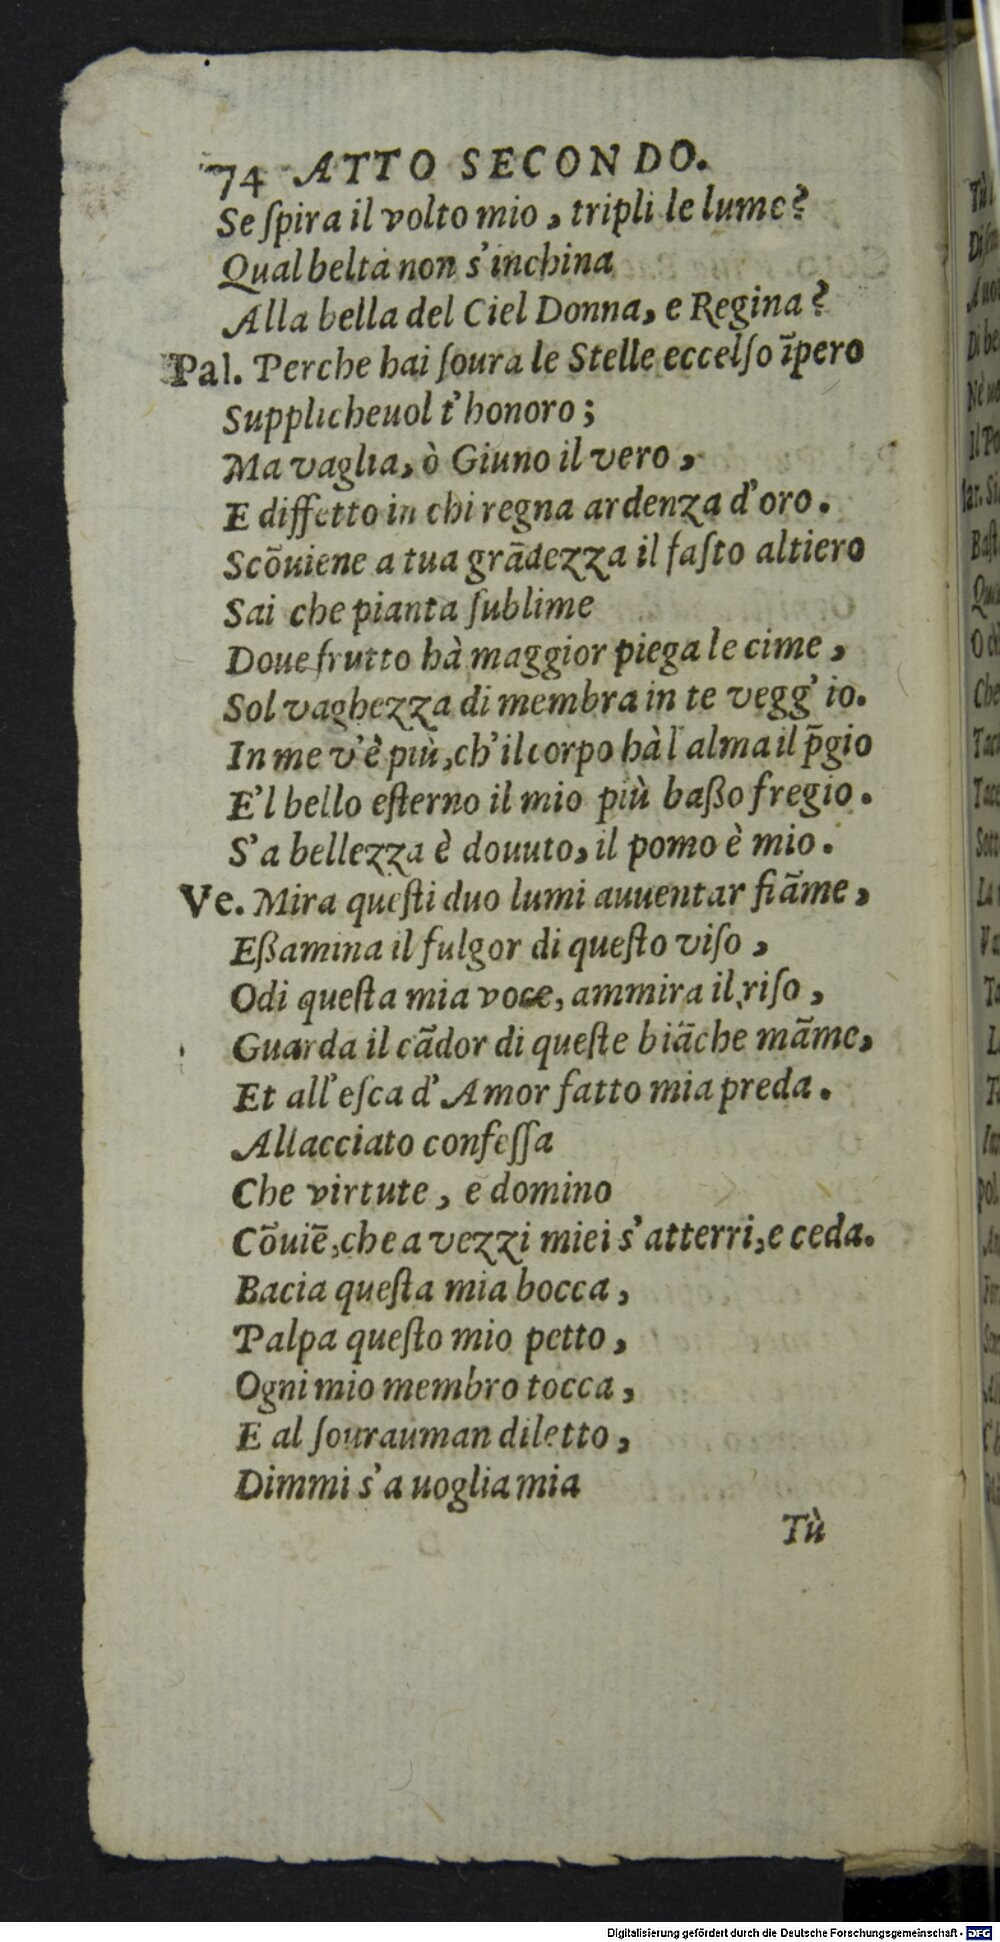 74 ATTO SECONDO.
Se ſpira il volto mio, tripli le lume?
Qual beltà non s'inchina
Alla bella del Ciel Donna, e Regina?
Pal. Perche hai ſoura le Stelle eccelſo ĩpero
Supplicheuol t'honoro;
Ma vaglia, ò Giuno il vero,
E diffetto in chi regna ardenza d'oro.
Scõuiene a tua grãdezza il faſto altiero
Sai che pianta ſublime
Doue frutto hà maggior piega le cime,
Sol vaghezza di membra in te vegg' io.
In me v'è più, ch'il corpo hà l'alma il p̃gio
E'l bello eſterno il mio più baßo fregio.
S'a bellezza è douuto, il pomo è mio.
Ve. Mira queſti duo lumi auuentar fiãme,
Eßamina il fulgor di queſto viſo,
Odi queſta mia voce, ammira il riſo,
Guarda il cãdor di queſte biãche mãme,
Et all'eſca d'Amor fatto mia preda.
Allacciato confeſſa
Che virtute, e domino
Cõuiẽ, che a vezzi miei s'atterri, e ceda.
Bacia queſta mia bocca,
Palpa queſto mio petto,
Ogni mio membro tocca,
E al ſourauman diletto,
Dimmi s'a uoglia mia
Tù
Digitalisierung gefördert durch die Deutsche Forschungsgemeinschaft - DFG